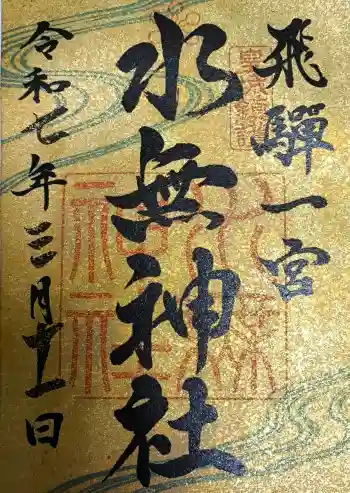 飛騨一宮
水無神社
令和七年三月十一日